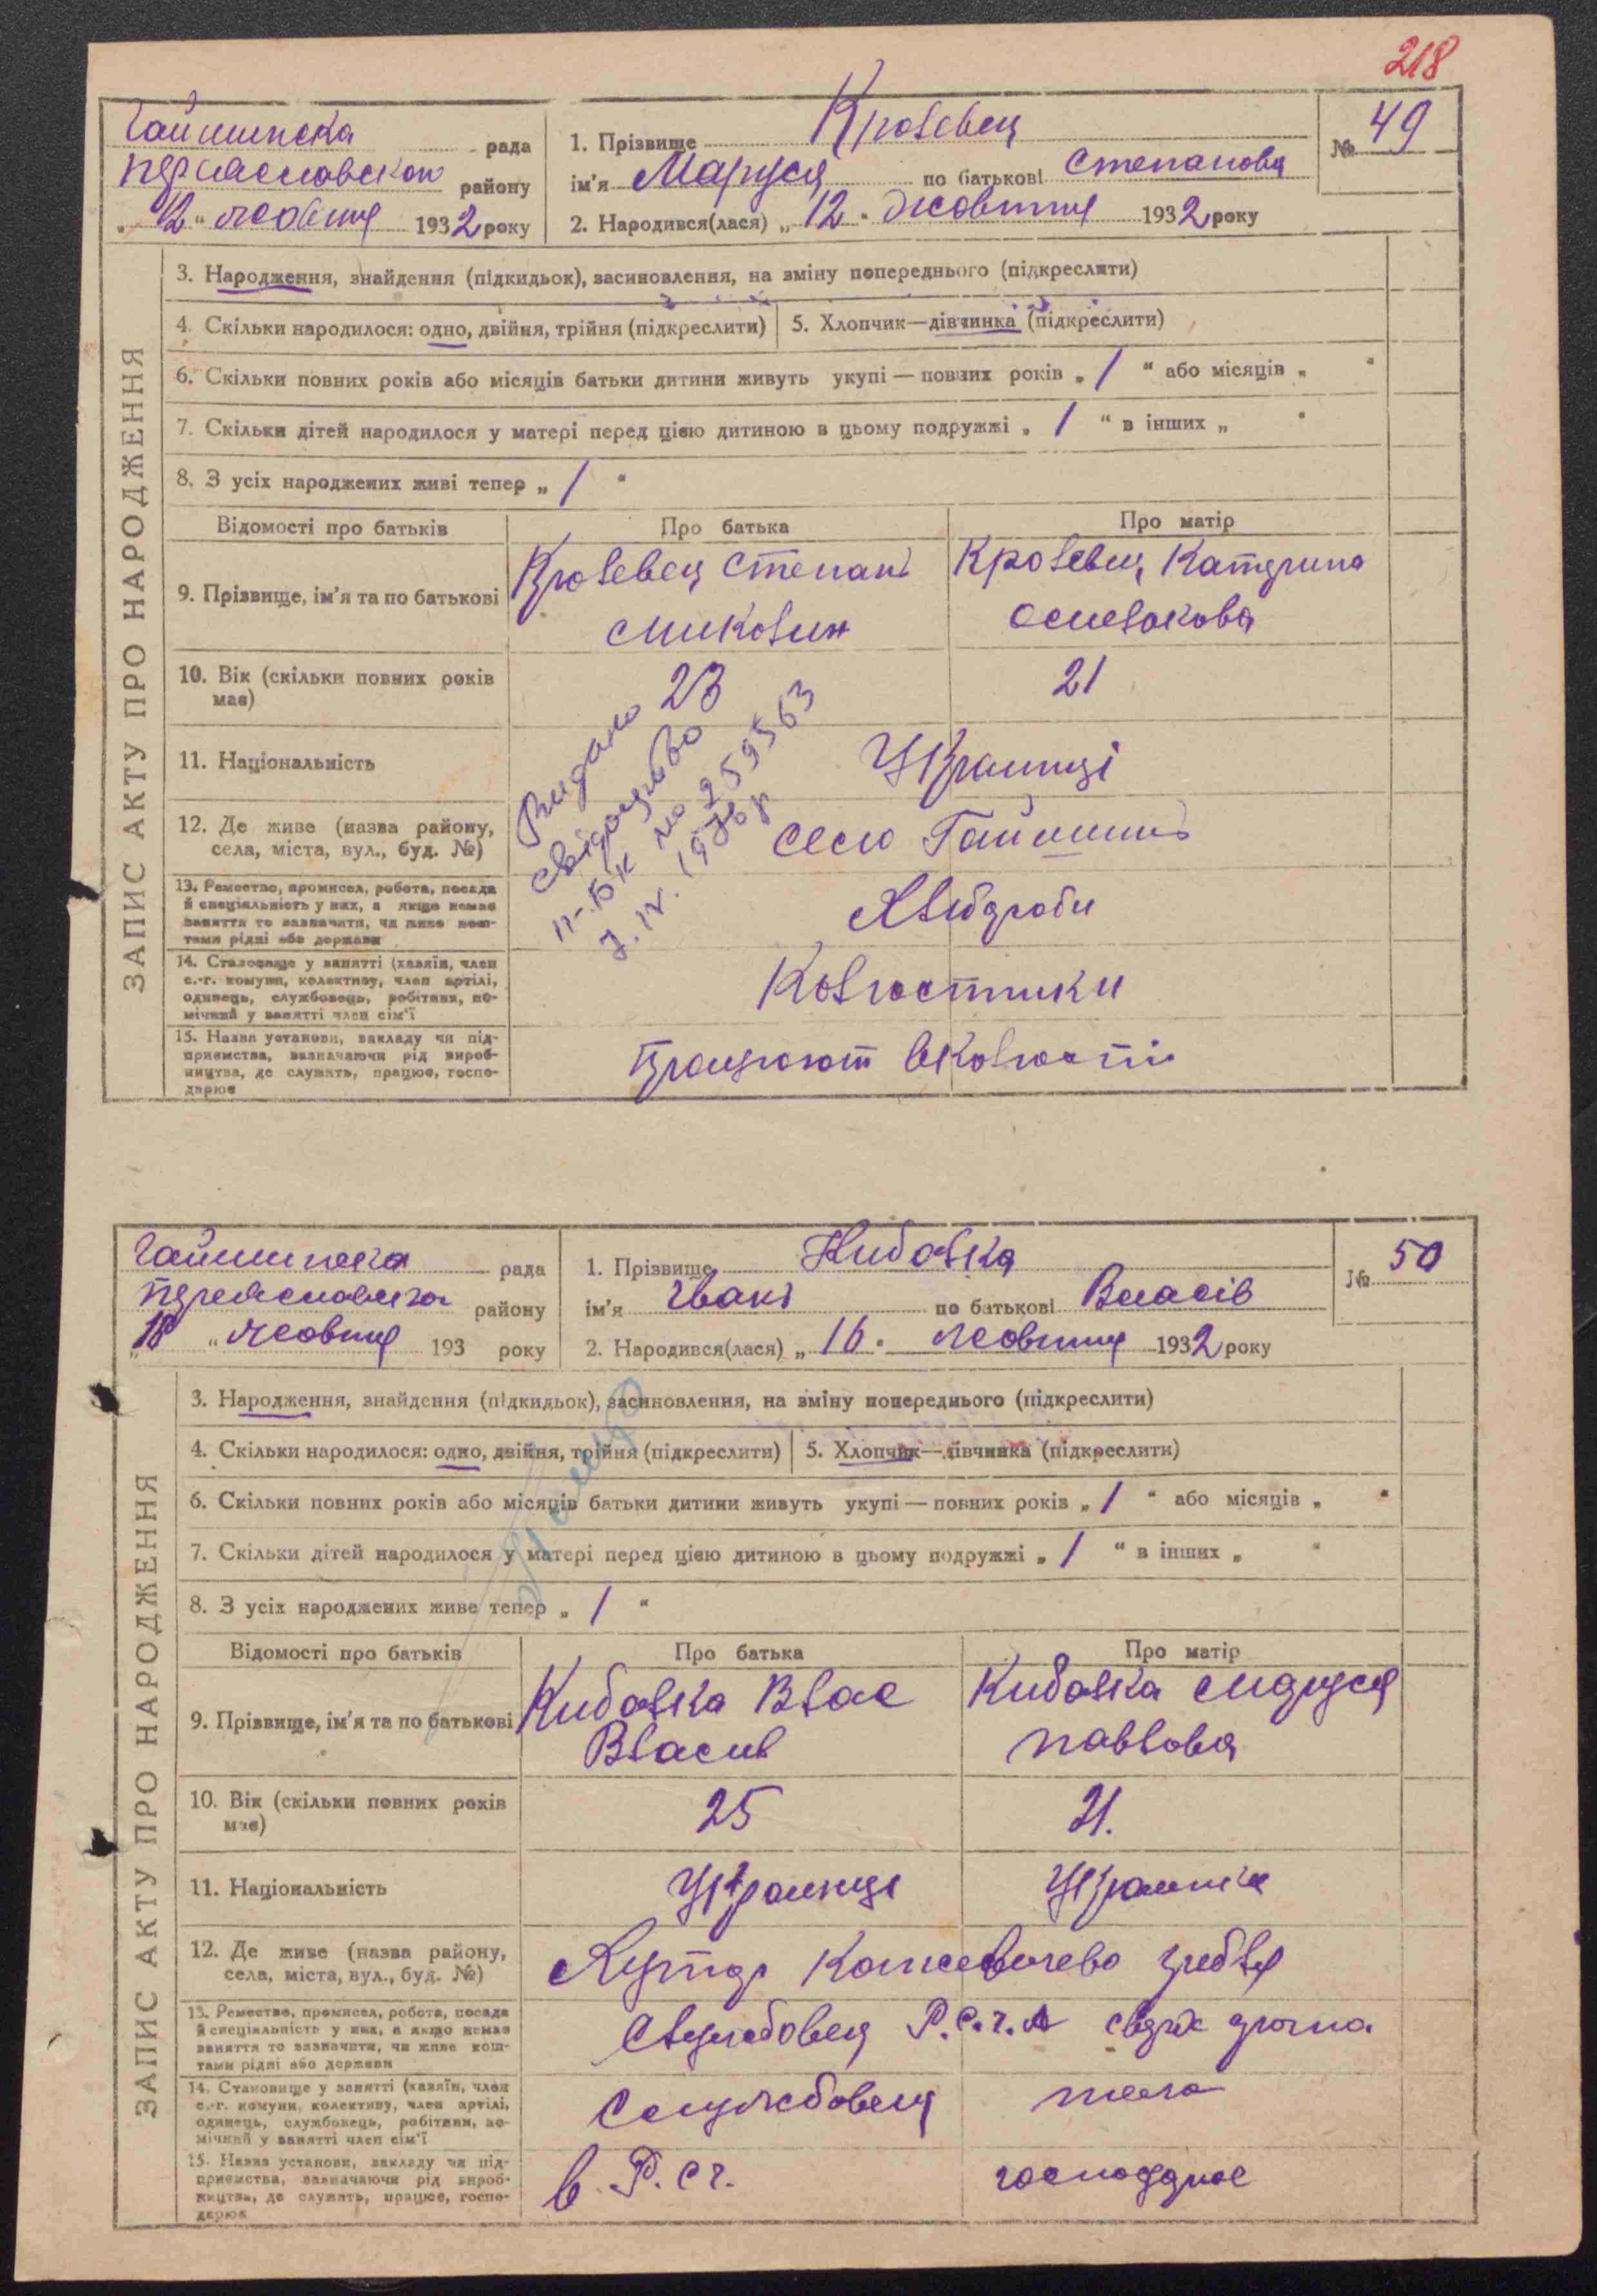 218
Гайшинска рада
Переяславскои району
„12“ жовтня 1932 року
1. Прізвище Кролевец
ім'я Маруся по батькові Степанова
2. Народився(лася) „12“ жовтня 1932 року
№ 49
ЗАПИС АКТУ ПРО НАРОДЖЕННЯ
3. Народження, знайдення (підкидьок), засиновлення, на зміну попереднього (підкреслити)
4. Скільки народилося: одно, двійня, трійня (підкреслити) 5. Хлопчик—дівчинка (підкреслити)
6. Скільки повних років або місяців батьки дитини живуть укупі — повних років „1“ або місяців „ “
7. Скільки дітей народилося у матері перед цією дитиною в цьому подружжі „1“ в інших „ “
8. З усіх народжених живі тепер „1“
Відомості про батьків Про батька Про матір
9. Прізвище, ім'я та по батькові
Кролевец Степан
Кролевец Катерина
10. Вік (скільки повних років має) 23 21
11. Національність Украинці
12. Де живе (назва району, села, міста, вул., буд. №) село Гайшин
13. Ремество, промисел, робота, посада
й спеціальність у них, а якщо немає
заняття то зазначити, чи живе кош-
тами рідні або держави
Хлибороби
14. Становище у занятті (хазяїн, член
с.-г. комуни, колективу, член артілі,
одинець, службовець, робітник, по-
мічний у занятті член сім'ї
Колгостники
15. Назва установи, закладу чи під-
приємства, зазначаючи рід вироб-
ництва, де служить, працює, госпо-
дарює
Працюют вколгоспі
Видано
свідоцтво
II-БК № 259563
7.IV.1976р
Гайшинска рада
Переяславска району
„18“ жовтня 193 року
1. Прізвище Кибалка
ім'я Іван по батькові Власів
2. Народився(лася) „16. жовтня 1932 року
№ 50
ЗАПИС АКТУ ПРО НАРОДЖЕННЯ
3. Народження, знайдення (підкидьок), засиновлення, на зміну попереднього (підкреслити)
4. Скільки народилося: одно, двійня, трійня (підкреслити) 5. Хлопчик—дівчинка (підкреслити)
6. Скільки повних років або місяців батьки дитини живуть укупі — повних років „1“ або місяців „ “
7. Скільки дітей народилося у матері перед цією дитиною в цьому подружжі „1“ в інших „ “
8. З усіх народжених живе тепер „1“
Відомості про батьків Про батька Про матір
9. Прізвище, ім'я та по батькові
Кибалка Влас
Власив
Кибалка Маруся
Павлова
10. Вік (скільки повних років має) 25 21.
11. Національність Украинці Украинка
12. Де живе (назва району, села, міста, вул., буд. №) Хутор гребля
13. Ремество, промисел, робота, посада
й спеціальність у них, а якщо немає
заняття то зазначити, чи живе кош-
тами рідні або держави
Службовец
14. Становище у занятті (хазяїн, член
с.-г. комуни, колективу, член артілі,
одинець, службовець, робітник, по-
мічний у занятті член сім'ї
Службовец
15. Назва установи, закладу чи під-
приємства, зазначаючи рід вироб-
ництва, де служить, працює, госпо-
дарює
в Р.С.Ч. господарює